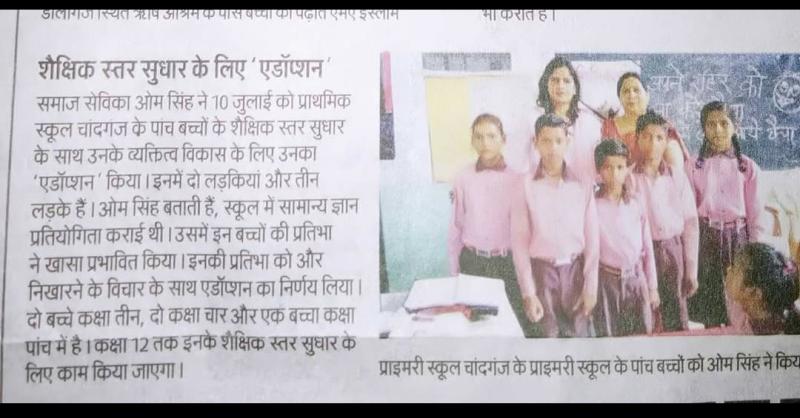 डालीगंज स्थित ऋषि आश्रम के पास बच्चों को पढ़ाते एमए इस्लाम
भी कराते हैं।
शैक्षिक स्तर सुधार के लिए 'एडॉप्शन'
समाज सेविका ओम सिंह ने 10 जुलाई को प्राथमिक
स्कूल चांदगज के पांच बच्चों के शैक्षिक स्तर सुधार
के साथ उनके व्यक्तित्व विकास के लिए उनका
'एडॉप्शन' किया। इनमें दो लड़कियां और तीन
लड़के हैं। ओम सिंह बताती हैं, स्कूल में सामान्य ज्ञान
प्रतियोगिता कराई थी। उसमें इन बच्चों की प्रतिभा
ने खासा प्रभावित किया। इनकी प्रतिभा को और
निखारने के विचार के साथ एडॉप्शन का निर्णय लिया।
दो बच्चे कक्षा तीन, दो कक्षा चार और एक बच्चा कक्षा
पांच में है। कक्षा 12 तक इनके शैक्षिक स्तर सुधार के
लिए काम किया जाएगा।
प्राइमरी स्कूल चांदगंज के प्राइमरी स्कूल के पांच बच्चों को ओम सिंह ने किय